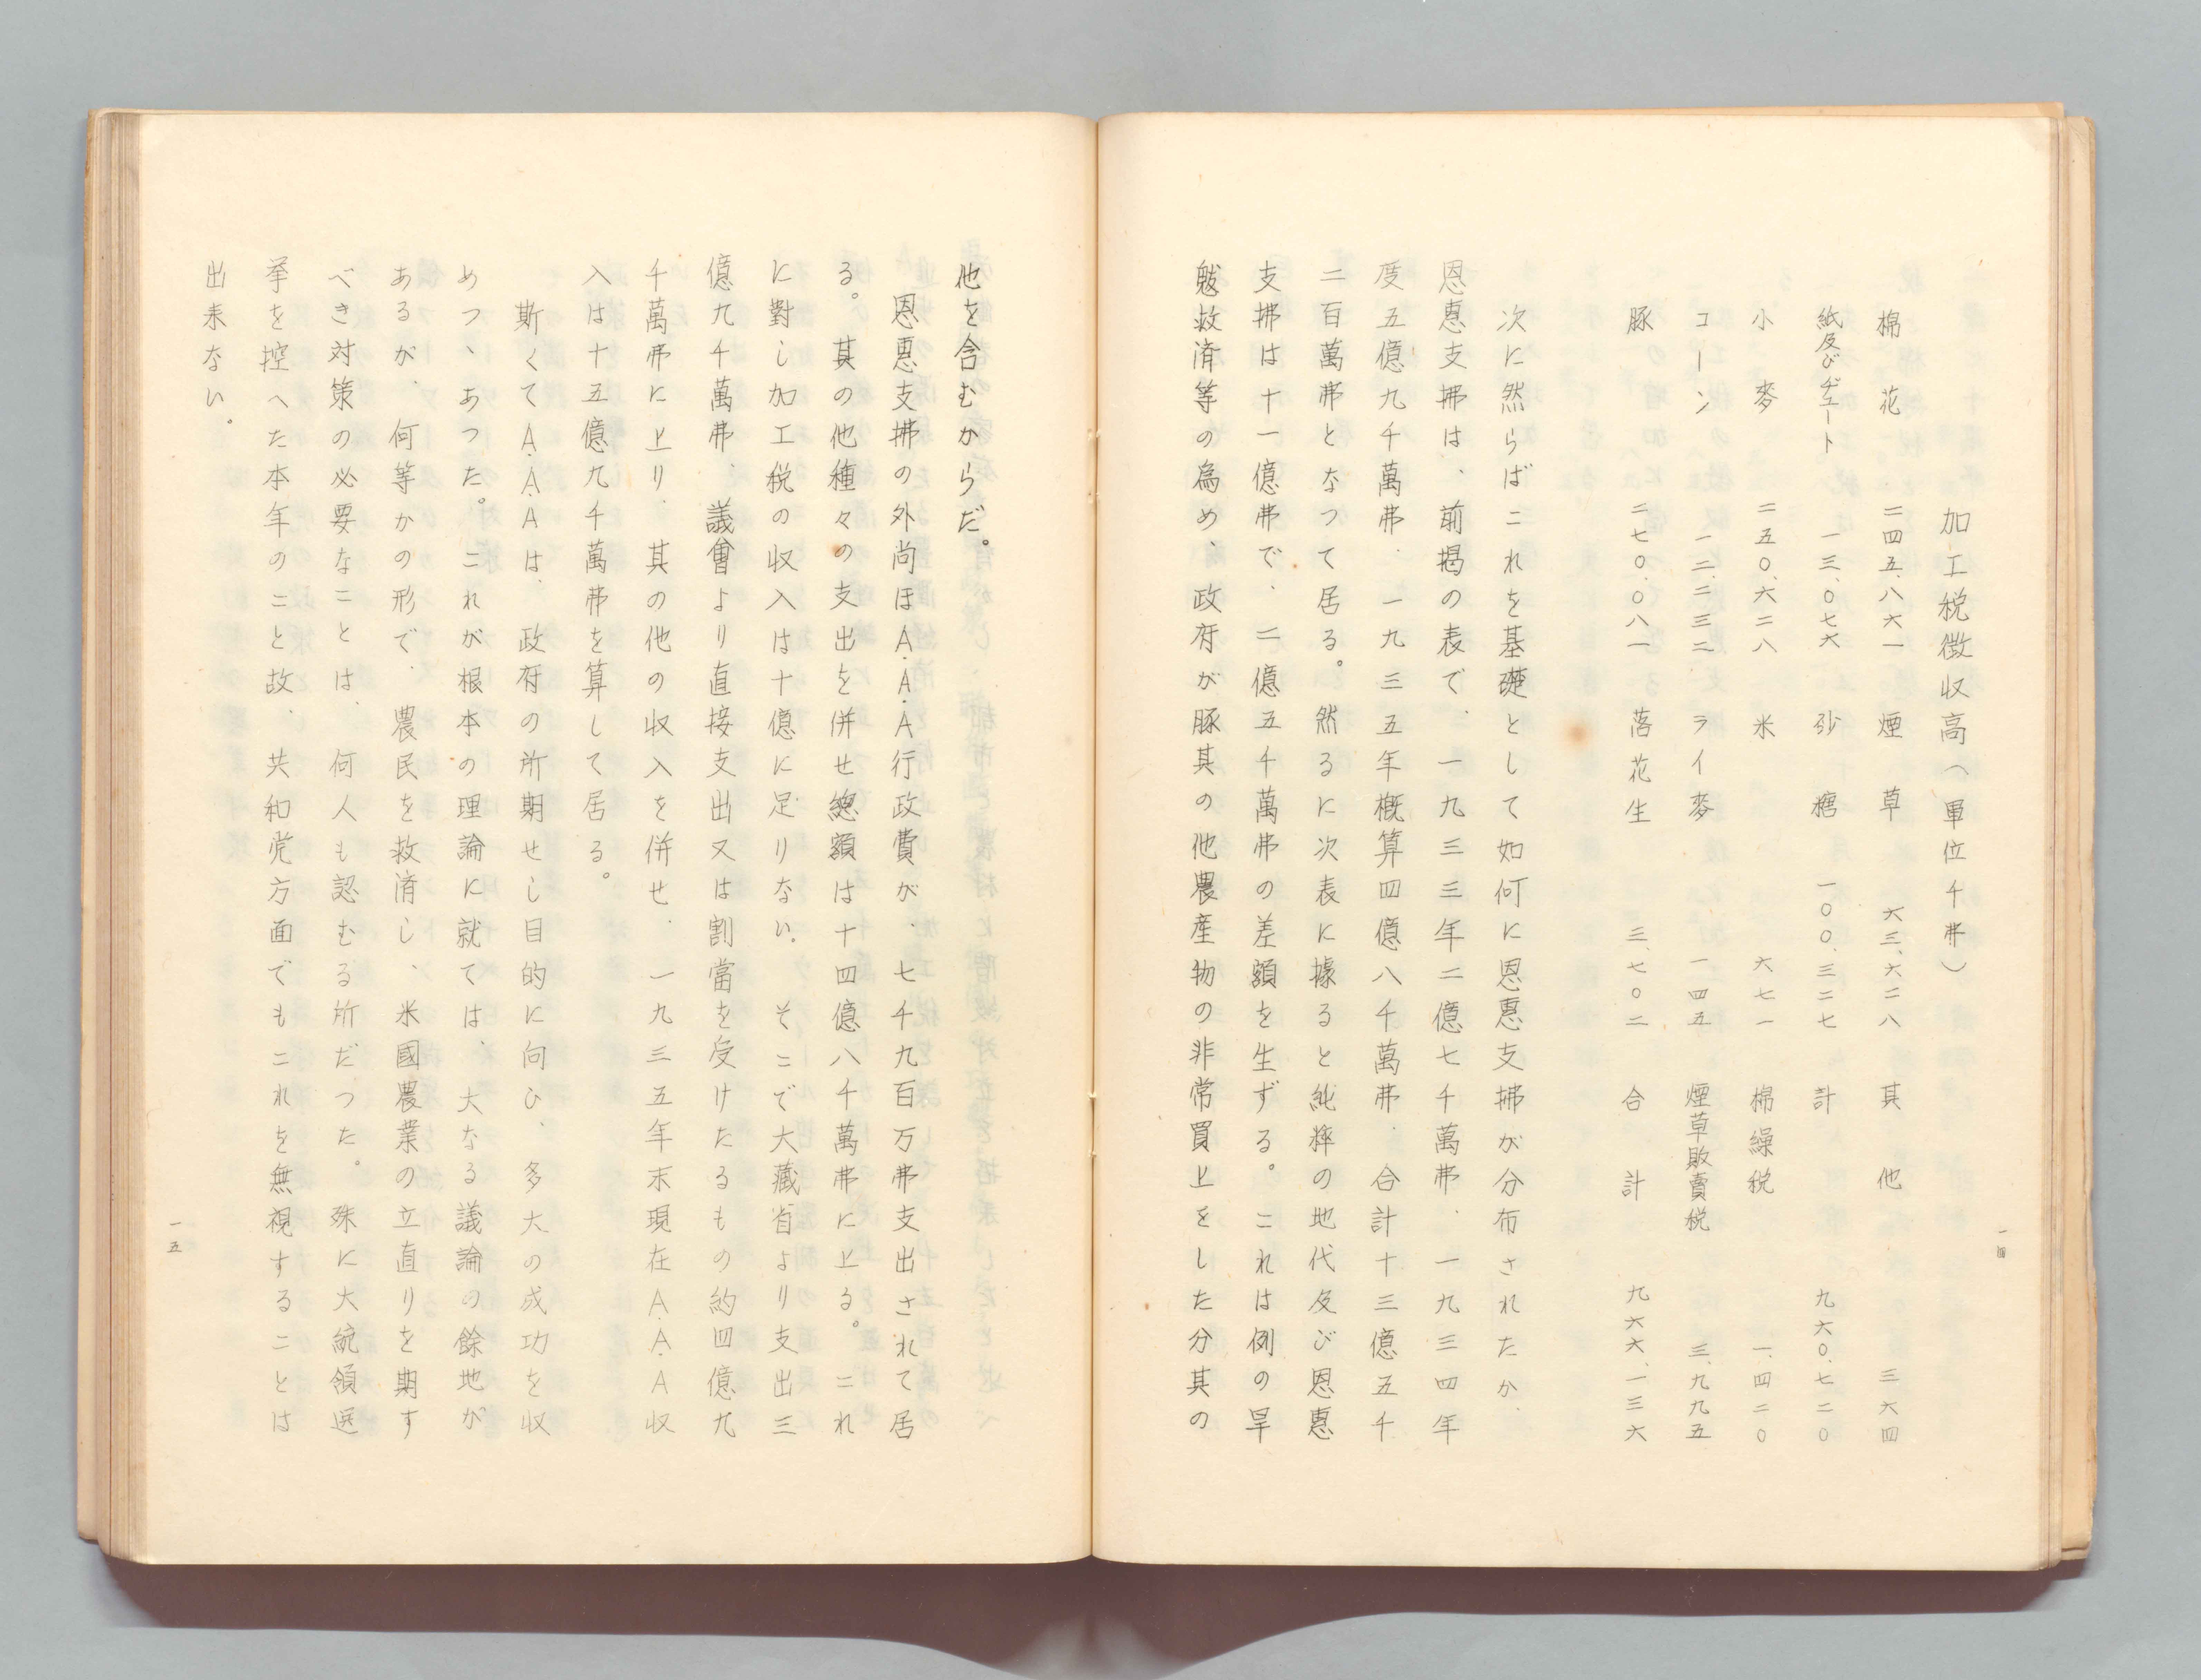 加工税徴収高（單位千弗）
棉花　二四五、八六一　煙草　六三、六二八　其他　三六四
紙及びヂュート　一三、〇七六　砂糖　一〇〇、三二七　計　九六〇、七二〇
小麥　二五〇、六二八　米　六七一　棉繰税　一、四二〇
コーン　一二、二三二　ライ麥　一四五　煙草販賣税　三、九九五
豚　二七〇、〇八一　落花生　三、七〇二　合計　九六六、一三六
次に然らばこれを基礎として如何に恩惠支拂が分布されたか、
恩惠支拂は、前掲の表で、一九三三年二億七千萬弗、一九三四年
度五億九千萬弗、一九三五年概算四億八千萬弗、合計十三億五千
二百萬弗となつて居る。然るに次表に據ると純粹の地代及び恩惠
支拂は十一億弗で、二億五千萬弗の差額を生ずる。これは例の旱
魃救済等の為め、政府が豚其の他農産物の非常買上をした分其の
一四
他を含むからだ。
恩惠支拂の外尚ほA.A.A行政費が、七千九百万弗支出されて居
る。其の他種々の支出を併せ總額は十四億八千萬弗に上る。これ
に對し加工税の収入は十億に足りない。そこで大藏省より支出三
億九千萬弗、議會より直接支出又は割當を受けたるもの約四億九
千萬弗に上り、其の他の収入を併せ、一九三五年末現在A.A.A収
入は十五億九千萬弗を算して居る。
斯くてA.A.Aは、政府の所期せし目的に向ひ、多大の成功を収
めつヽあつた。これが根本の理論に就ては、大なる議論の餘地が
あるが、何等かの形で、農民を救済し、米國農業の立直りを期す
べき対策の必要なことは、何人も認むる所だつた。殊に大統領選
挙を控へた本年のこと故、共和党方面でもこれを無視することは
出来ない。
一五